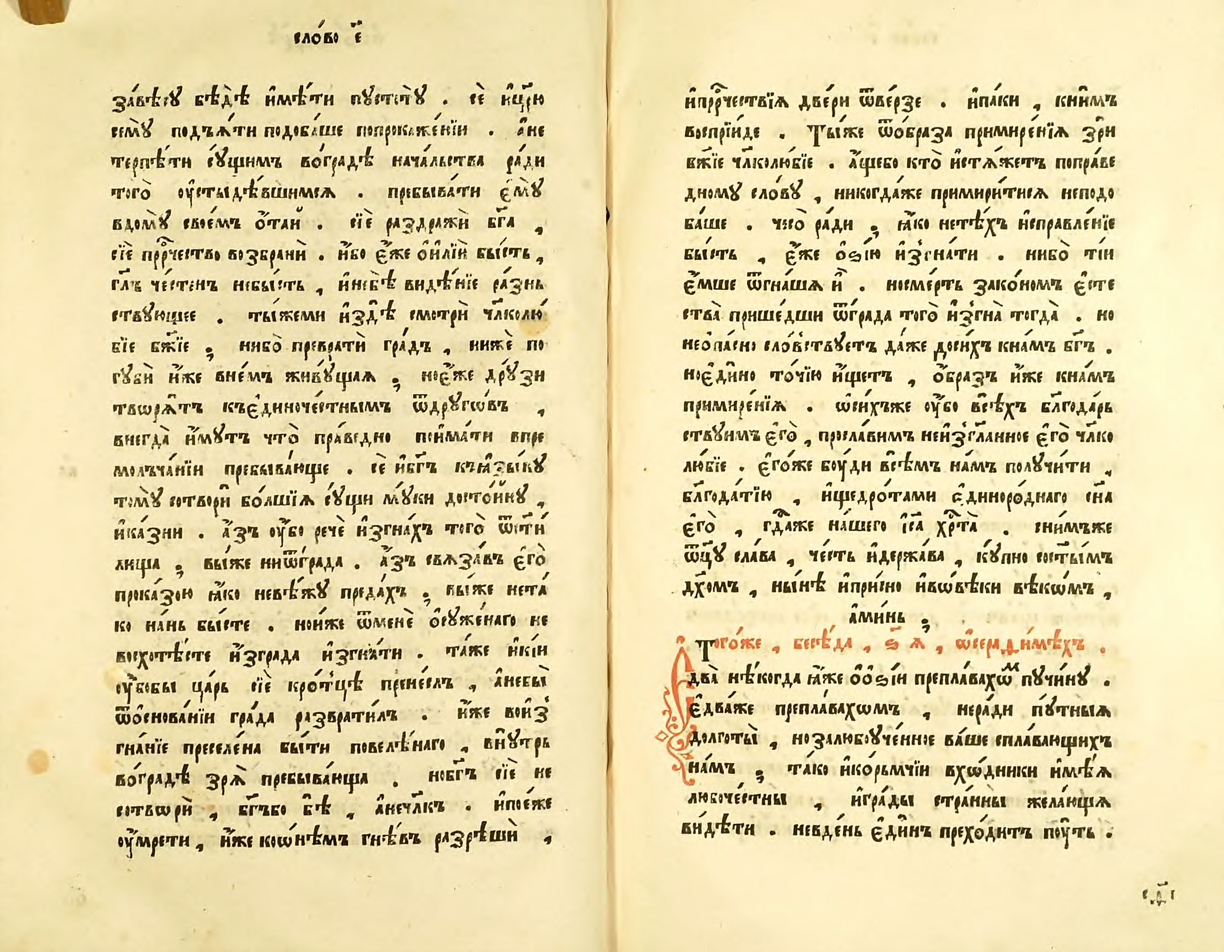 сло́во є҃
за́вѣсꙋ бѣдѣ̀ и҆мѣ́ти пꙋстотꙋ̀ . сѐ и҆црю̀
семꙋ̀ подъѧ́ти подоба́ше попрокаже́нїи . а҆не
терпѣ́ти сꙋ́щимъ вогра́дѣ нача́льства ра́ди
того̀ ᲂу҆стыдѣ́вшимсѧ . пребыва́ти є҆мꙋ̀
вдомꙋ̀ свое́мъ ѻ҆́таи . сїѐ раздражѝ бг҃а ,
сїѐ прⷪ҇рчество возбранѝ . и҆́бо є҆́же ѻ҆и҆лїѝ бы́сть ,
гл҃ъ че́стенъ небы́сть , и҆небѣ̀ видѣ́нїе ра́знь
ствꙋющее . ты́жеми и҆здѣ̀ смотрѝ чл҃колю́
бїе бж҃їе ; нибо̀ превратѝ гра́дъ , ниже по
гꙋбѝ и҆̀же вне́мъ живꙋ́щаѧ ; ноє҆́же дрꙋ́зи
творѧ́тъ къє҆диноче́стнымъ ѿдрꙋгѡ́въ ,
внегда̀ и҆́мꙋтъ что̀ пра́ведно пои҆ма́ти впре
молъча́нїи пребыва́юще . сѐ и҆бг҃ъ къꙗ҆зы́кꙋ
томꙋ̀ сотворѝ бо́лшїѧ сꙋ́щи мꙋ́ки досто́йнꙋ ,
и҆ка́зни . а҆́зъ ᲂу҆́бо речѐ и҆згна́хъ того̀ ѿст҃и
лища ; вы́же ниѿгра́да . а҆́зъ свѧза́въ є҆го̀
прока́зою ꙗ҆́ко невѣ́жꙋ преда́хъ ; вы́же нета́
ко на́нь бы́сте . нони́же ѿменѐ ѻ҆сꙋже́наго не
восхотѣ́сте и҆згра́да и҆згна́ти . та́же и҆кі́и
ᲂу҆́бобы ца́рь сїѐ кро́тцѣ пренеслъ , а҆небы̀
ѿѻснова́нїи гра́да развратилъ . и҆̀же вои҆з̾
гна́нїе пресе́лена бы́ти повелѣ́наго , внꙋ́трь
вогра́дѣ зрѧ̀ пребыва́юща . нобг҃ъ сїѐ не
сотворѝ , бг҃ъбо бѣ̀ , а҆нечл҃къ . и҆пое҆́же
ᲂу҆мрети , и҆́же коѡ҆нѣ́мъ гнѣ́въ разрѣшѝ ,
и҆прⷪ҇рчествїѧ двери ѿве́рзе . и҆па́ки , кни́мъ
воспрїи́де . Ты́же ѿо́браза примире́нїѧ зрѝ
бж҃їе чл҃колю́бїе . а҆́щебо кто̀ и҆стѧ́жетъ попра́ве
дномꙋ сло́вꙋ , никогда́же примири́тисѧ неподо
ба́ше . чесо̀ ра́ди ; ꙗ҆́ко нетѣ́хъ и҆справле́нїе
бы́сть , є҆́же ѻ҆ѕі́ю и҆згна́ти . нибо̀ ті́и
є҆́мше ѿгна́шѧ и҆̀ . носме́рть зако́номъ є҆сте
ства̀ прише́дши ѿгра́да того̀ и҆згна̀ тогда̀ . но
неѻпа́сно сло́вствꙋетъ да́же доси́хъ кна́мъ бг҃ъ .
ноє҆ди́но то́чїю и҆́щетъ , ѻ҆́бразъ и҆́же кна́мъ
примире́нїѧ . ѡ҆си́хъже ᲂу҆́бо всѣ́хъ бл҃годарь
ствꙋимъ є҆го̀ , просла́вимъ неи҆згл҃анное є҆го̀ чл҃ко
лю́бїе . є҆го́же боу́ди всѣ́мъ на́мъ получи́ти ,
бл҃года́тїю , и҆щедро́тами є҆диноро́днаго сн҃а
є҆го̀ , гдⷭ҇аже на́шего і҆с҃а хрⷭ҇та̀ . сни́мъже
ѿц҃ꙋ сла́ва , че́сть и҆держа́ва , кꙋ́пно сост҃ы́мъ
дх҃омъ , ны́нѣ и҆при́сно и҆вовѣ́ки вѣ́комъ ,
а҆ми́нь ;
Того́же , бесѣ́да , ѕ҃ ꙗ , ѡ҆серади́мѣхъ .
Адва̀ нѣ́когда ꙗ҆́же ѻ҆ѻ҆ѕі́и преплава́хѡⷨ пꙋчи́нꙋ .
є҆два́же преплава́хѡмъ , неради пꙋ́тныѧ
долготы̀ , нозалюбоуче́нное ва́ше спла́вающихъ
на́мъ ; та́ко и҆ко́рьмчїи вхѡ́дники и҆мѣ́ѧ
любоче́стны , и҆гра́ды стра́нны жела́ющѧ
ви́дѣти . невде́нь є҆ди́нъ прехо́дитъ поу́ть .